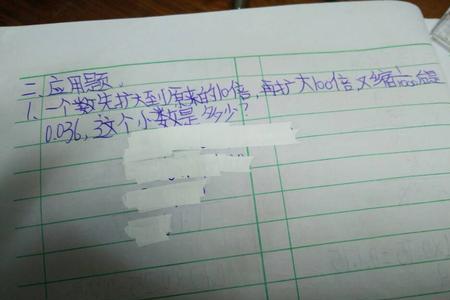 二、应用题。
1、一个数先扩大到原来的10倍,再扩大100倍又缩
0.036,这个小数是多少?